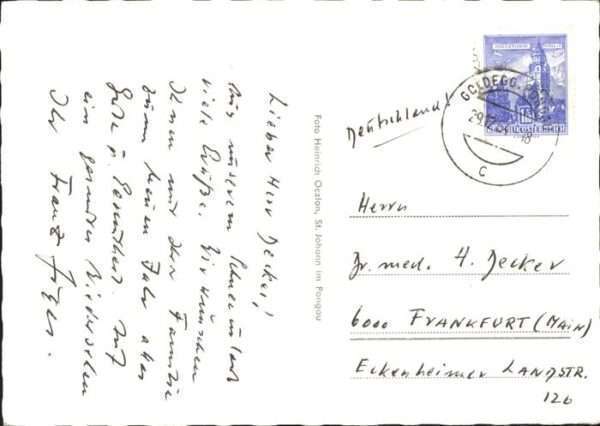 Lieber Herr Decker!
Aus unserem Schneeurlaub
viele Grüße. Wir wünschen
Ihnen und Ihrer Familie
zum neuen Jahr alles
Gute u. Gesundheit. Auf
ein gesundes Wiedersehen
Ihr Franz
Foto Heinrich Oczlon, St. Johann im Pongau
Deutschland!
GOLDEGG, PONGAU
29.12.
18
C
REPUBLIK ÖSTERREICH
Herrn
Dr. med. H. Decker
6000 FRANKFURT (MAIN)
Eckenheimer LANDSTR.
126